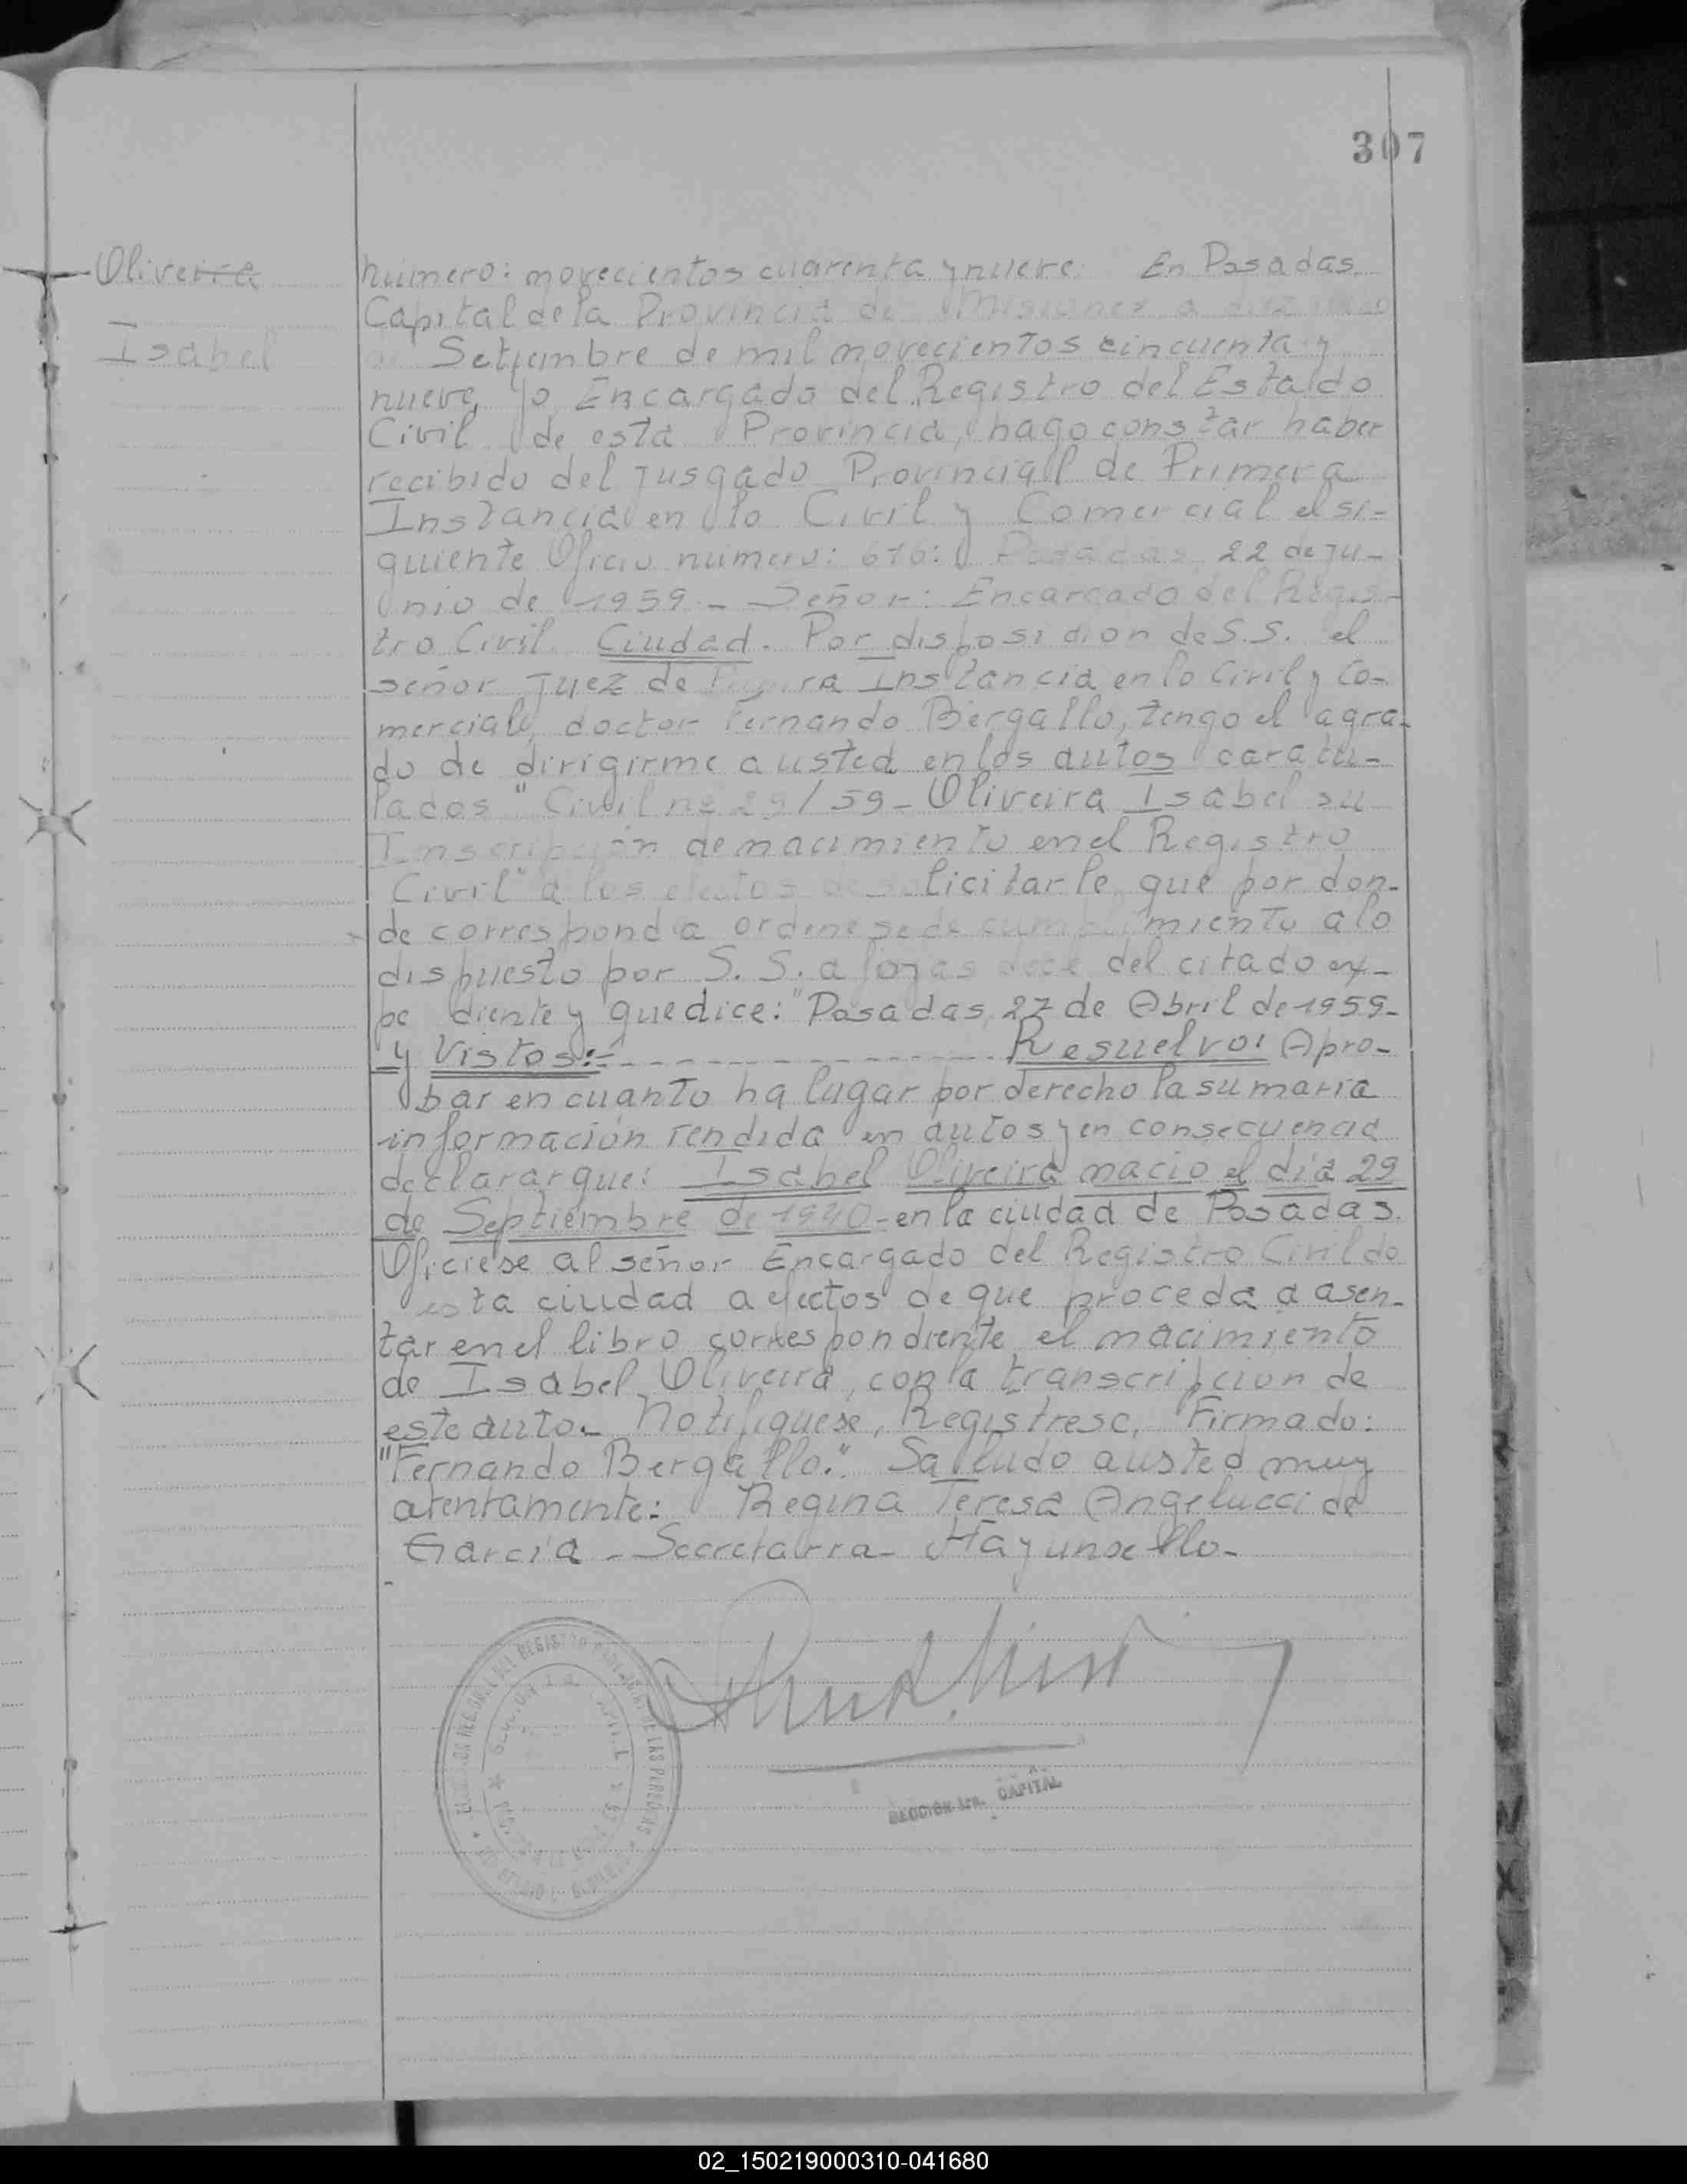 307
Oliveira
Isabel
número: novecientos cuarenta y nueve. En Posadas
Capital de la Provincia de Misiones a diez
de Setiembre de mil novecientos cincuenta y
nueve, yo Encargado del Registro del Estado
Civil de esta Provincia, hago constar haber
recibido del Jusgado Provincial de Primera
Instancia en lo Civil y Comercial el si-
guiente Oficio número: 616: Posadas, 22 de ju-
nio de 1959 - Señor: Encargado del Regis-
tro Civil. Ciudad. Por disposición de S.S. el
señor Juez de Primera Instancia en lo Civil y Co-
mercial, doctor Fernando Bergallo, tengo el agra-
do de dirigirme a usted en los autos caratu-
lados "Civil nº 29/59 - Oliveira Isabel su
Inscripción de nacimiento en el Registro
Civil" a los efectos de solicitarle, que por don-
de corresponda ordene se de cumplimiento a lo
dispuesto por S. S. a fojas doce del citado ex-
pe diente y que dice: "Posadas, 27 de Abril de 1959-
y Vistos:= - - - - - - - - - - - - - - - - Resuelvo: Apro-
bar en cuanto ha lugar por derecho la sumaria
información rendida en autos y en consecuencia
declarar que: Isabel Oliveira nacio el día 29
de Septiembre de 1940 - en la ciudad de Posadas.
Ofíciese al señor Encargado del Registro Civil de
esta ciudad a efectos de que proceda a asen-
tar en el libro correspondiente, el nacimiento
de Isabel Oliveira, con la transcripción de
este auto. Notifíquese, Regístrese. Firmado:
"Fernando Bergallo." Saludo a usted muy
atentamente: Regina Teresa Angelucci de
García - Secretaria - Hay un sello-
SECCION 1ra. CAPITAL
02_150219000310-041680